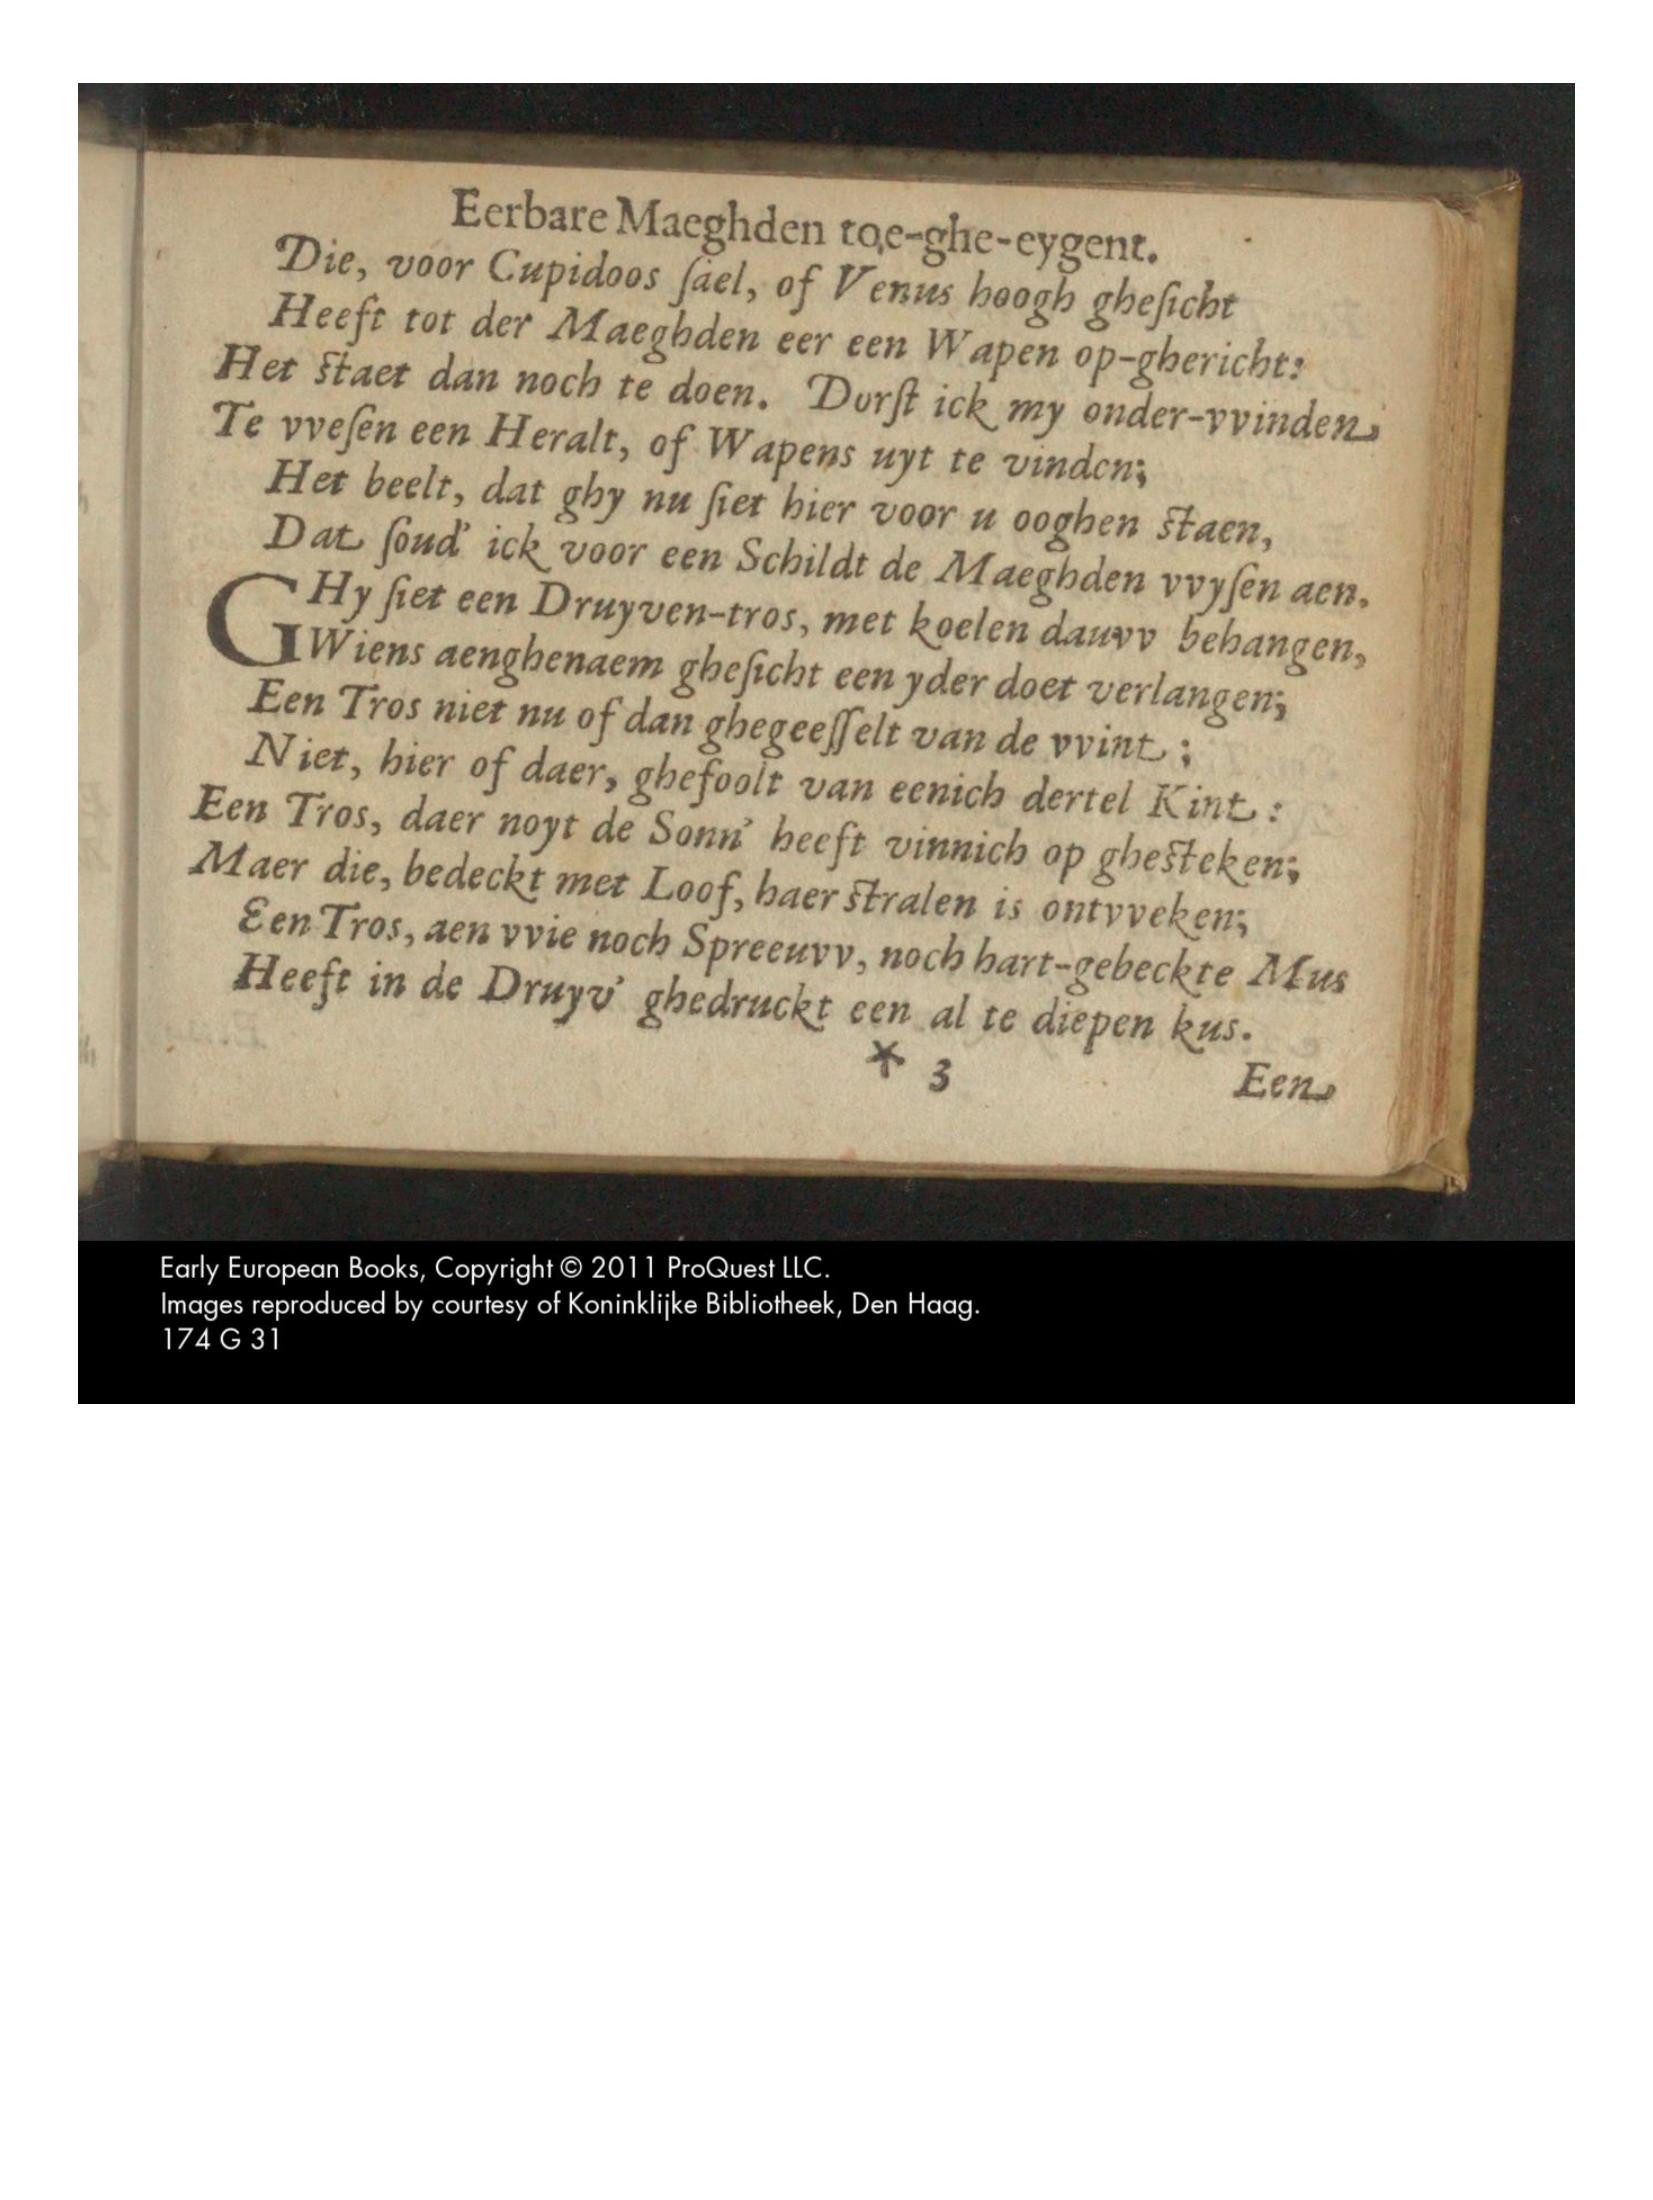 Eerbare Maeghden toe-ghe-eygent.
Die, voor Cupidoos ſael, of Venus hoogh gheſicht
Heeft tot der Maeghden eer een Wapen op-ghericht:
Het ſtaet dan noch te doen. Dorſt ick my onder-vvinden
Te vveſen een Heralt, of Wapens uyt te vinden;
Het beelt, dat ghy nu ſiet hier voor u ooghen ſtaen,
Dat ſoud' ick voor een Schildt de Maeghden vvyſen aen.
GHy ſiet een Druyven-tros, met koelen dauvv behangen,
Wiens aenghenaem gheſicht een yder doet verlangen;
Een Tros niet nu of dan ghegeeſſelt van de vvint;
Niet, hier of daer, ghefoolt van eenich dertel Kint:
Een Tros, daer noyt de Sonn' heeft vinnich op gheſteken;
Maer die, bedeckt met Loof, haer ſtralen is ontvveken;
Een Tros, aen vvie noch Spreeuvv, noch hart-gebeckte Mus
Heeft in de Druyv' ghedruckt een al te diepen kus.
* 3
Een
Early European Books, Copyright © 2011 ProQuest LLC.
Images reproduced by courtesy of Koninklijke Bibliotheek, Den Haag.
174 G 31